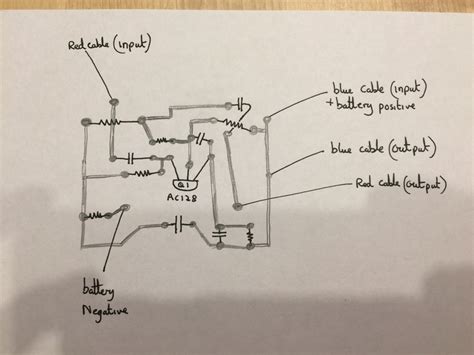 Red cable (input)
blue cable (input)
+ battery positive
blue cable (output)
Red cable (output)
Q1
AC128
battery
Negative